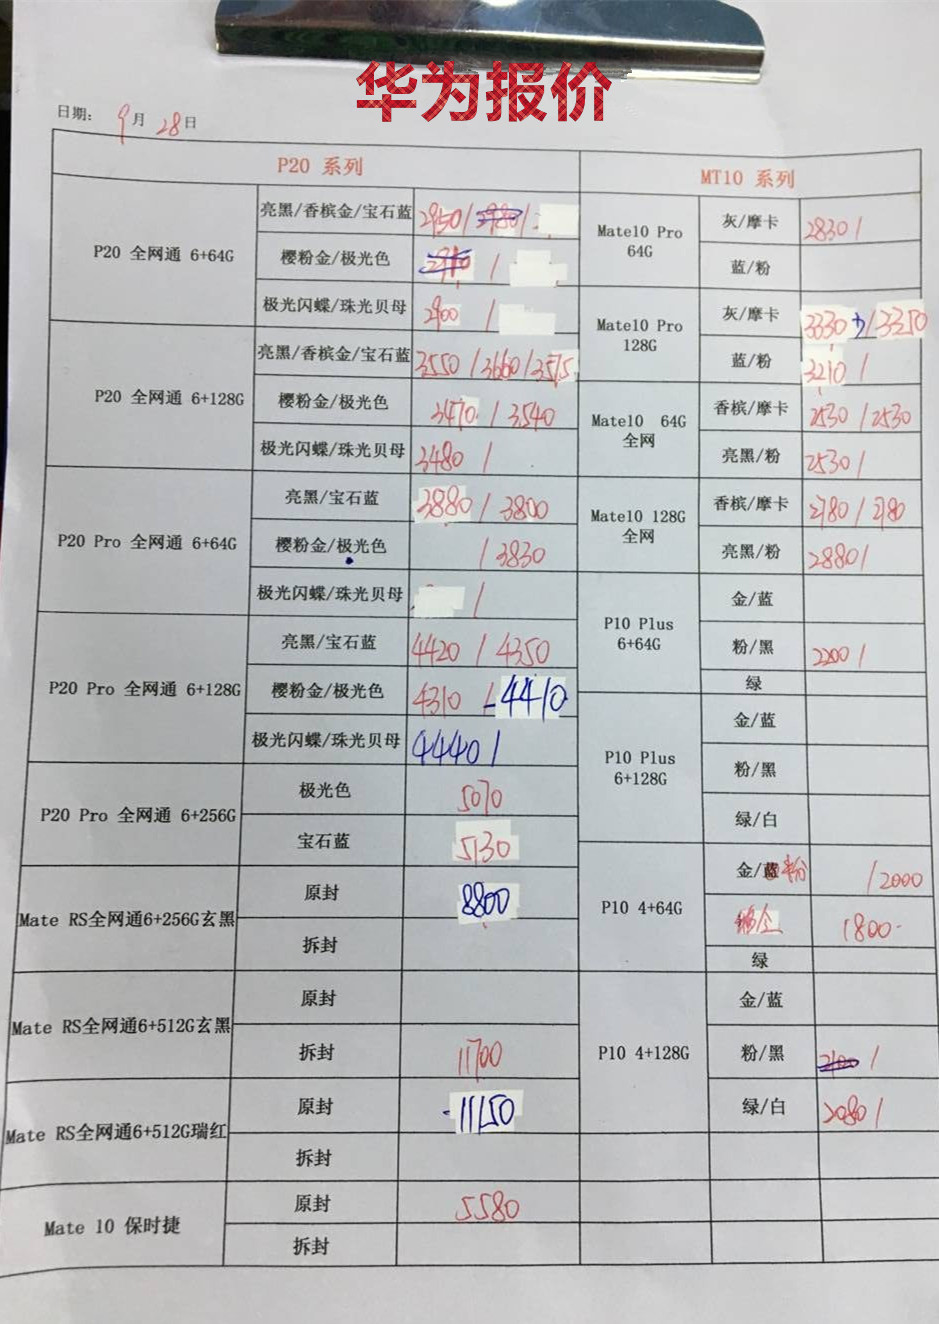 华为报价
日期: 9月28日
P20 系列
P20 全网通 6+64G
亮黑/香槟金/宝石蓝 2950/2980/
樱粉金/极光色 /
极光闪蝶/珠光贝母 2900 /
P20 全网通 6+128G
亮黑/香槟金/宝石蓝 3550/3660/3575
樱粉金/极光色 3470/3540
极光闪蝶/珠光贝母 3480/
P20 Pro 全网通 6+64G
亮黑/宝石蓝 3880/3800
樱粉金/极光色 /3830
极光闪蝶/珠光贝母 /
P20 Pro 全网通 6+128G
亮黑/宝石蓝 4420/4350
樱粉金/极光色 4310 -4410
极光闪蝶/珠光贝母 4440/
P20 Pro 全网通 6+256G
极光色 5070
宝石蓝 5130
Mate RS全网通6+256G玄黑
原封 8800
拆封
Mate RS全网通6+512G玄黑
原封
拆封 11700
Mate RS全网通6+512G瑞红
原封 -11150
拆封
Mate 10 保时捷
原封 5580
拆封
MT10 系列
Mate10 Pro
64G
灰/摩卡 2830/
蓝/粉
Mate10 Pro
128G
灰/摩卡 3330/3350
蓝/粉 3210/
Mate10 64G
全网
香槟/摩卡 2530/2530
亮黑/粉 2530/
Mate10 128G
全网
香槟/摩卡 2780/2780
亮黑/粉 2880/
P10 Plus
6+64G
金/蓝
粉/黑 2200/
绿
P10 Plus
6+128G
金/蓝
粉/黑
绿/白
P10 4+64G
金/蓝 /2000
1800-
绿
P10 4+128G
金/蓝
粉/黑 2100/
绿/白 2080/